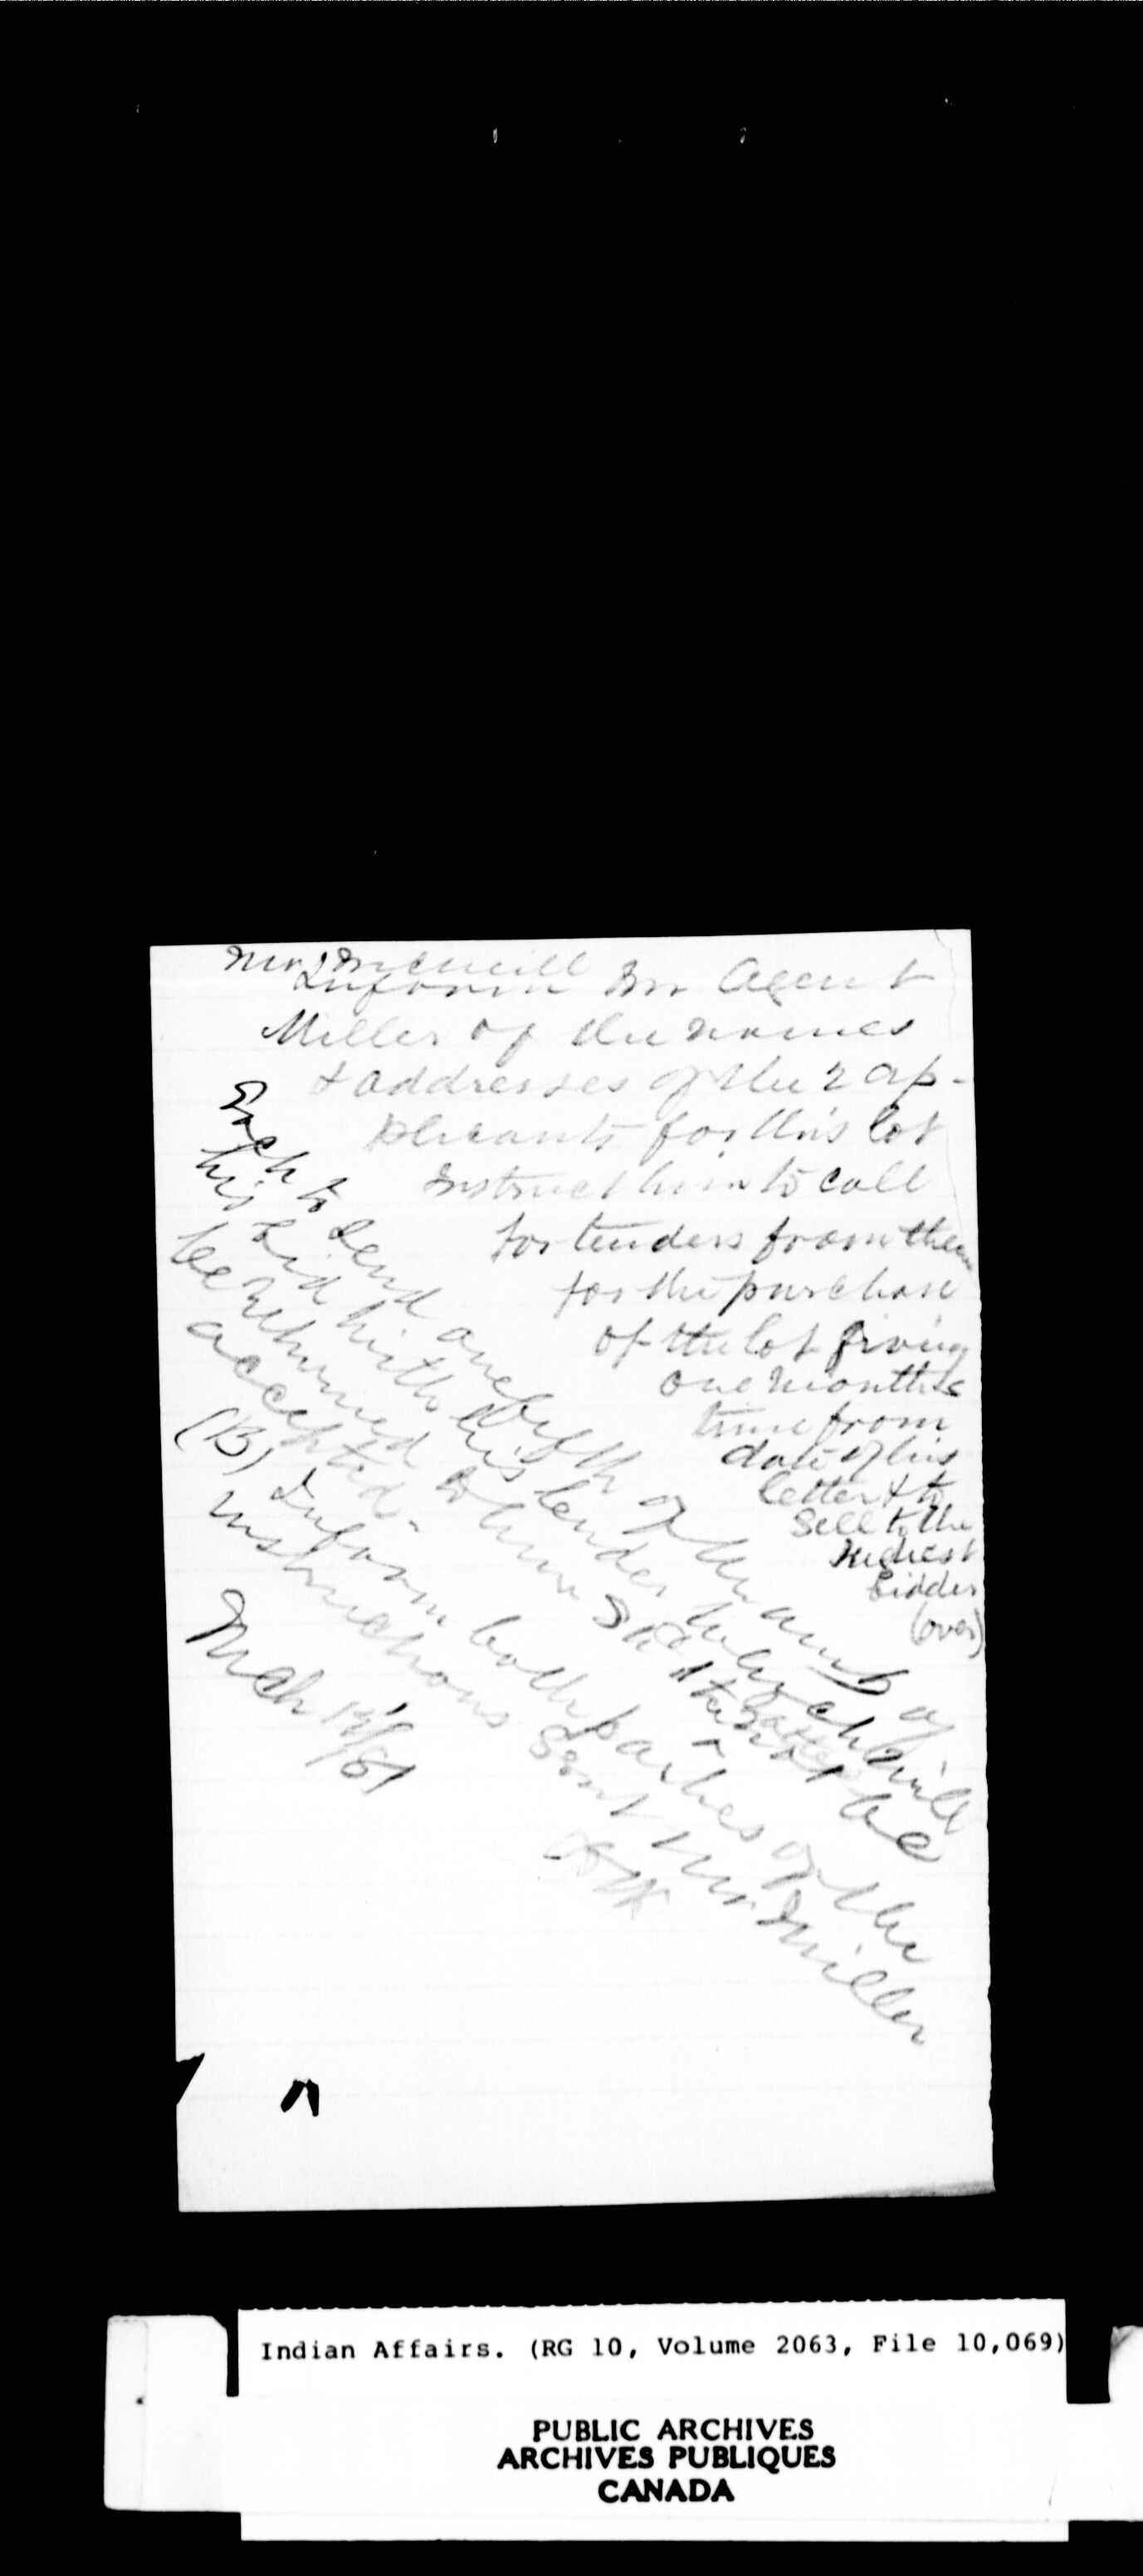 Mr McNeill
Inform Mr Agent
Miller of the names
& addresses of the 2 ap-
plicants for this lot
Instruct him to call
for tenders from them
for the purchase
of the lot giving
one months
time from
date of his
letter & to
Sell to the
highest
bidder
(over)
Each to send one fifth of the amt of
his bid with his tender which will
be returned to him Shd it not be
accepted.
(B) Inform both parties of the
instructions sent Mr Miller
Mch 12/81
Indian Affairs. (RG 10, Volume 2063, File 10,069)
PUBLIC ARCHIVES
ARCHIVES PUBLIQUES
CANADA